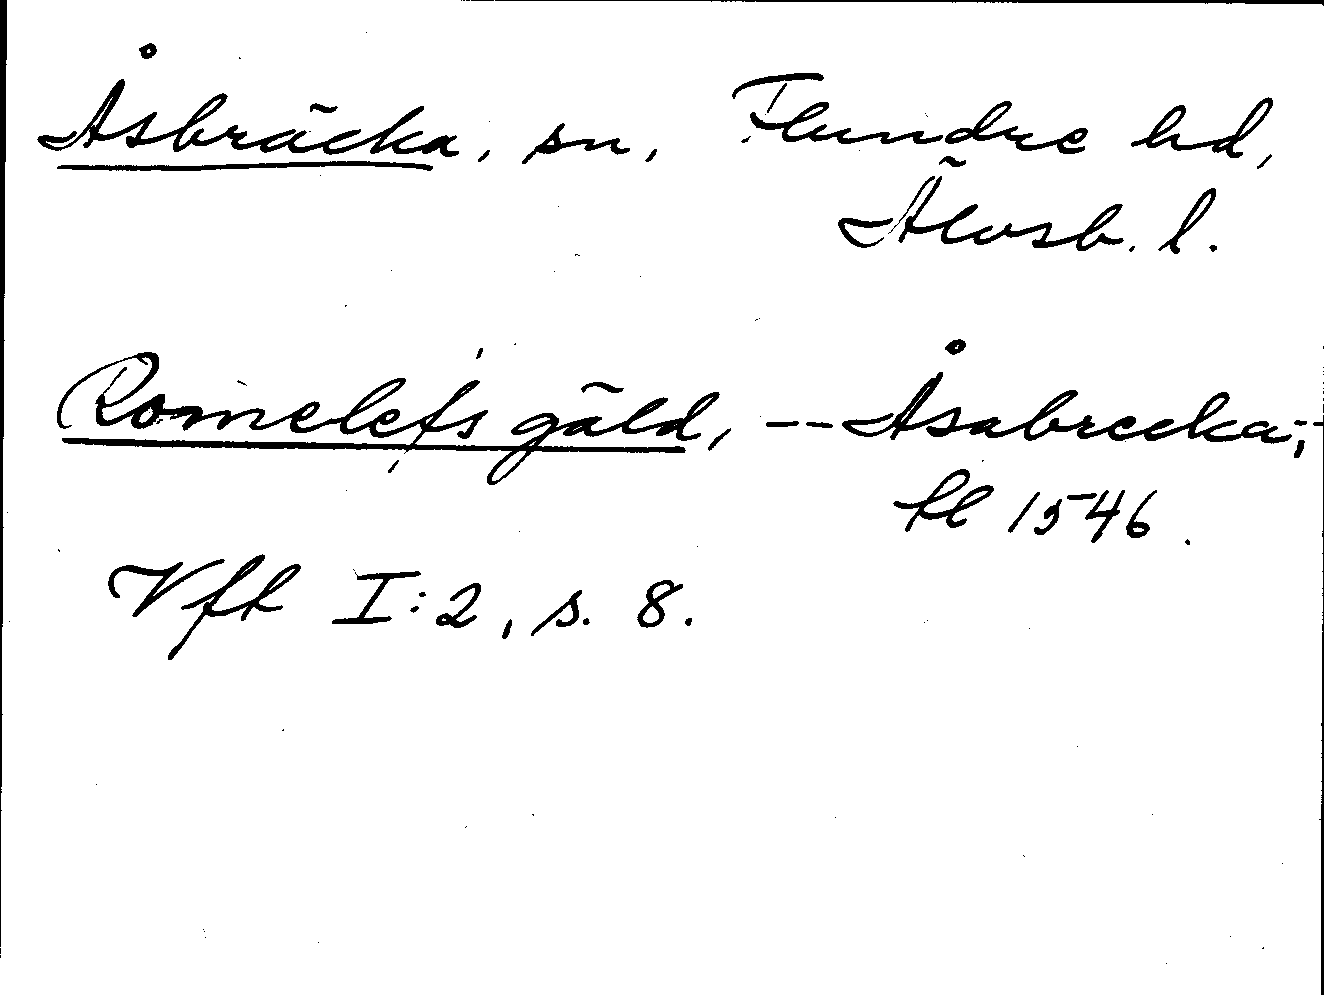 Åsbräcka, sn, Flundre hd,
Älvsb. l.
Romelefs gäld, -- Åsabrecka; -
fl 1546.
Vft I:2, s. 8.